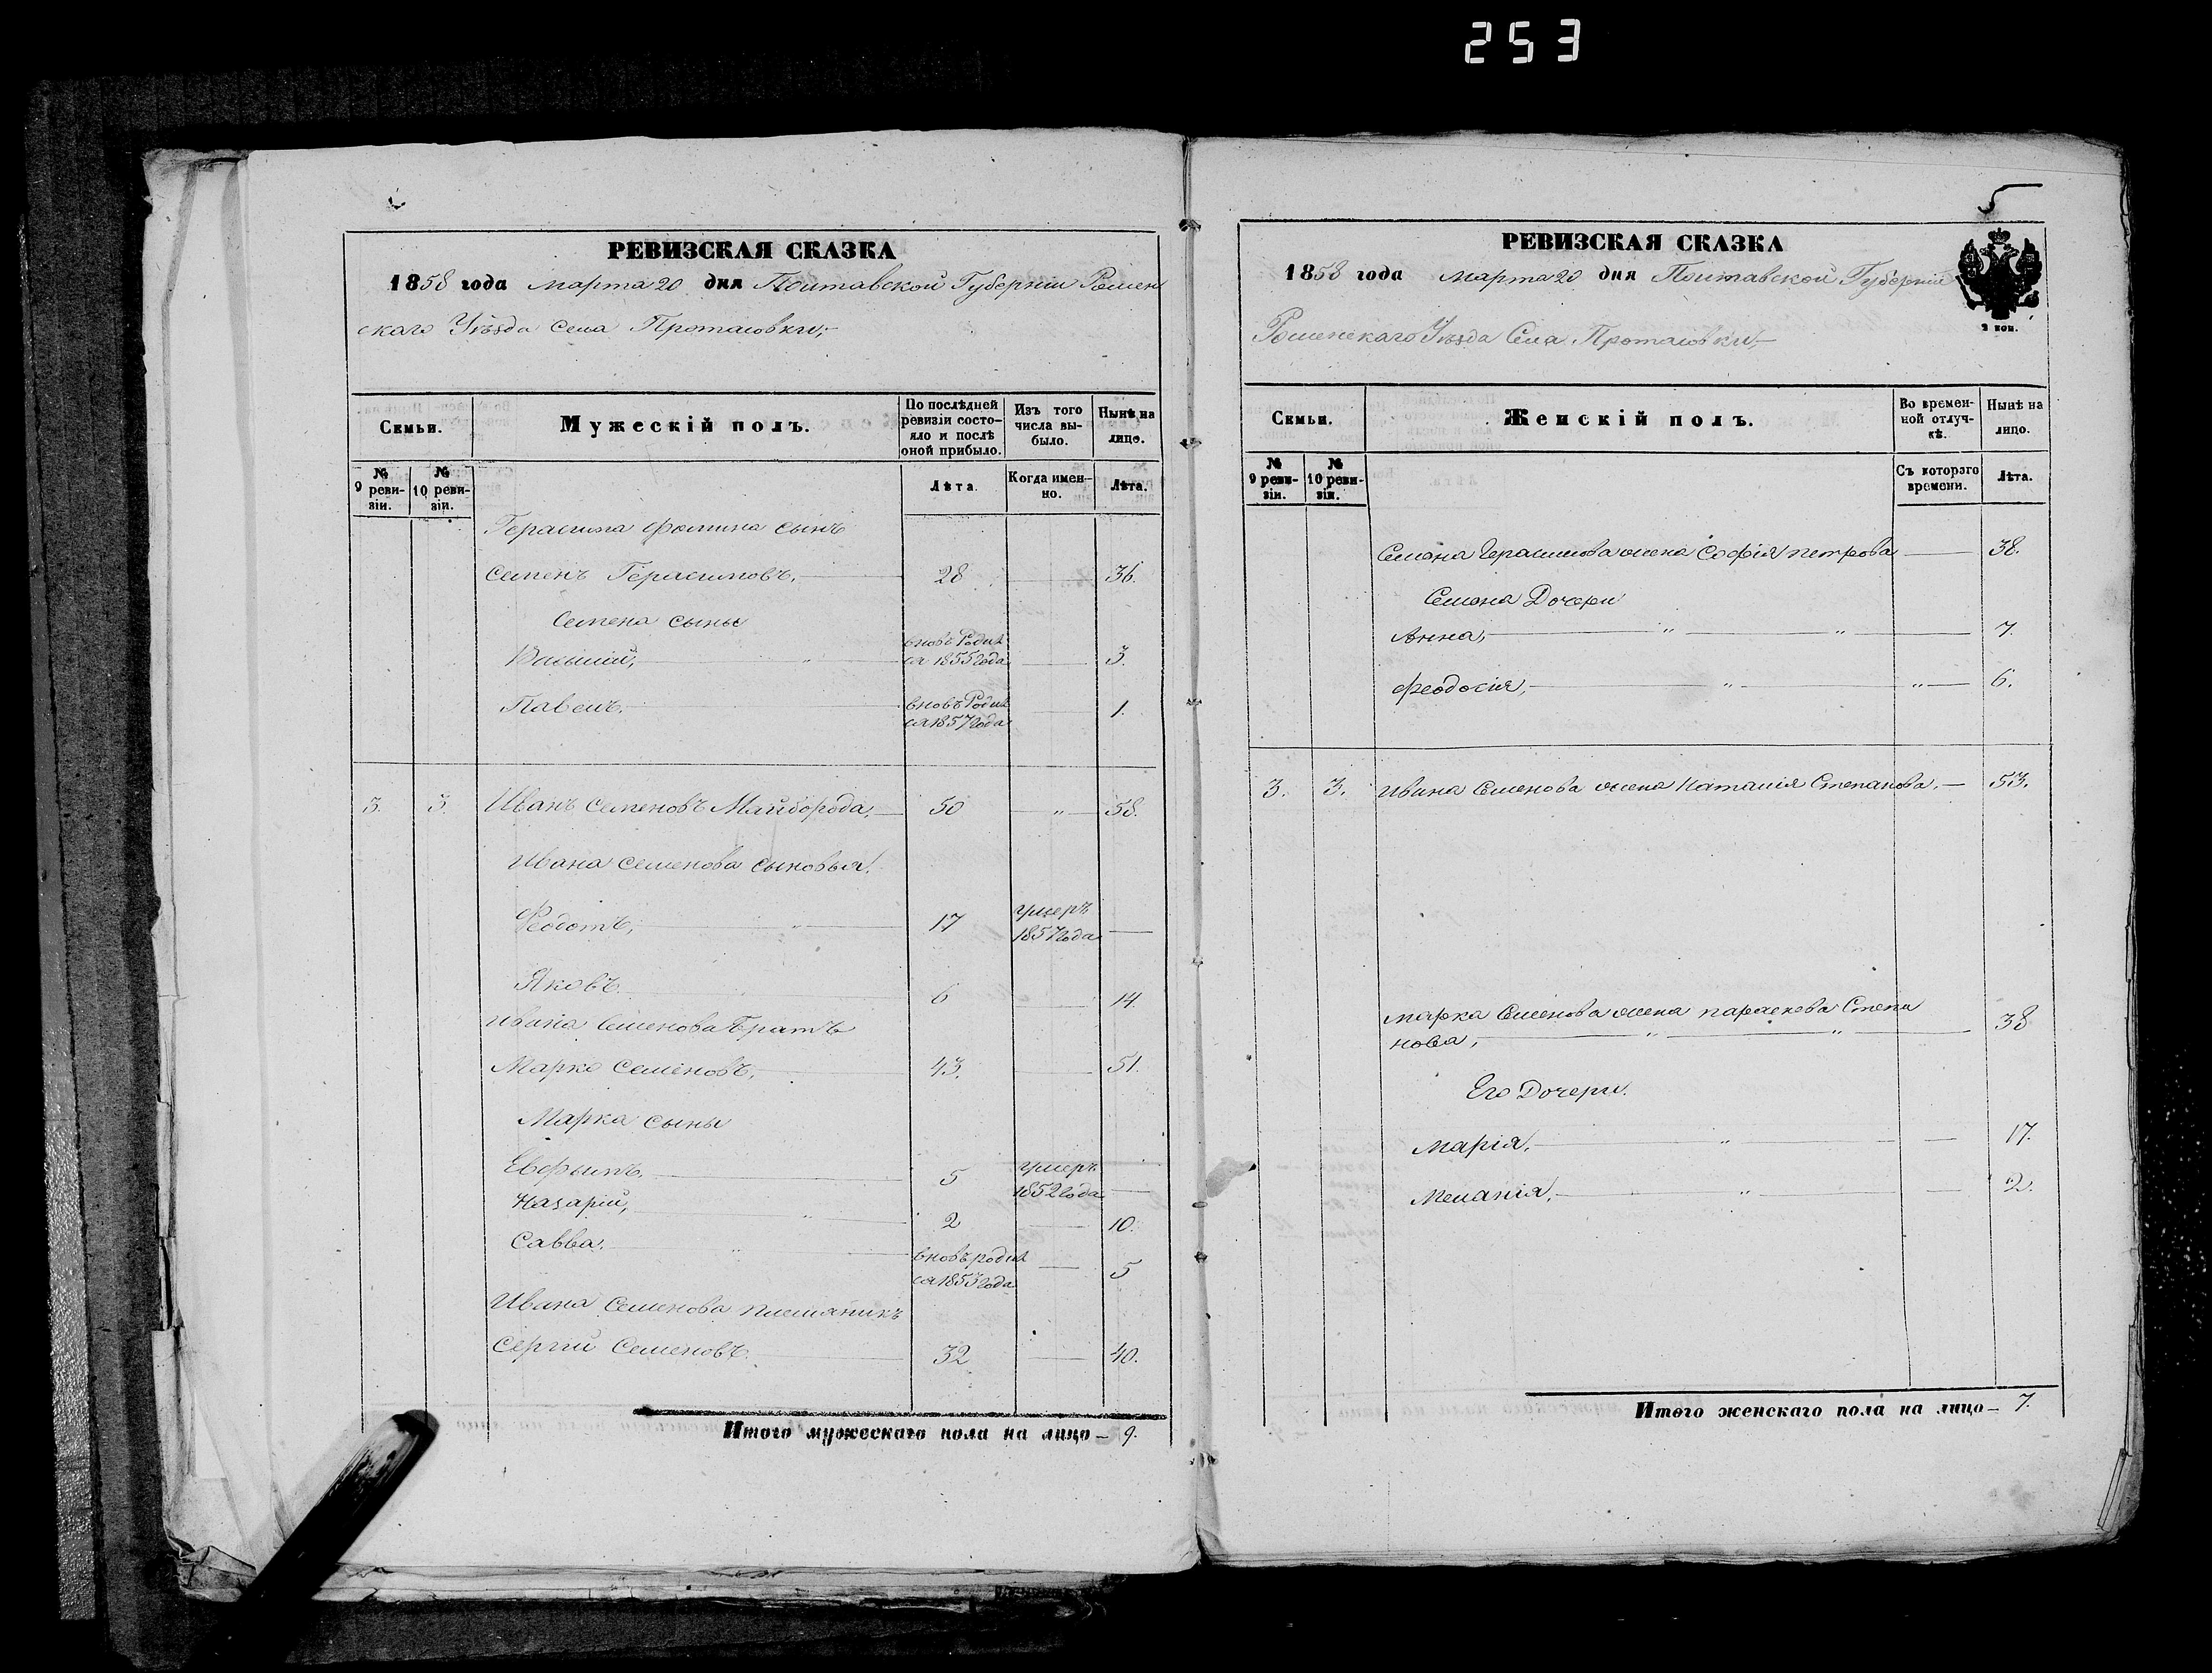 253
5
РЕВИЗСКАЯ СКАЗКА
1858 года марта 20 дня Полтавской Губерніи Ромен
скаго Уѣзда Села Протасовки,
Семьи.
Мужескій полъ.
По послѣдней ревизіи состояло и послѣ оной прибыло.
Изъ того числа выбыло.
Нынѣ на лицо.
№ 9 ревизіи.
№ 10 ревизіи.
Лѣта.
Когда именно.
Лѣта.
Герасима Фомина сынъ
Семенъ Герасимовъ, 28 36.
Семена сыны
Василій, вновь Родил ся 1855 года 3.
Павелъ. вновь Родил ся 1857 года 1.
3. 3. Иванъ Семеновъ Майборода, 50 58.
Ивана Семенова сыновья.
Феодотъ, 17 умеръ 1857 года
Яковъ. 6 14
Ивана Семенова Братъ
Марко Семеновъ, 43. 51.
Марка сыны
5 умеръ 1852 года
Назарій, 2 10.
Савва. вновь родил ся 1853 года 5
Ивана Семенова племяникъ
Сергій Семеновъ. 32 40.
Итого мужескаго пола на лицо — 9.
РЕВИЗСКАЯ СКАЗКА
1858 года марта 20 дня Полтавской Губерніи
Роменскаго Уѣзда Села Протасовки,
2 коп.
Семьи.
Женскій полъ.
Во временной отлучкѣ.
Нынѣ на лицо.
№ 9 ревизіи.
№ 10 ревизіи.
Съ котораго времени.
Лѣта.
Семена Герасимова жена Софія петрова 38.
Семена Дочери
Анна, 7.
Феодосія, 6.
3. 3. Ивана Семенова жена Наталія Степанова. 53.
Марка Семенова жена параскева Степа
нова, 38
Его Дочери.
Марія, 17.
Меланія, 2.
Итого женскаго пола на лицо — 7.